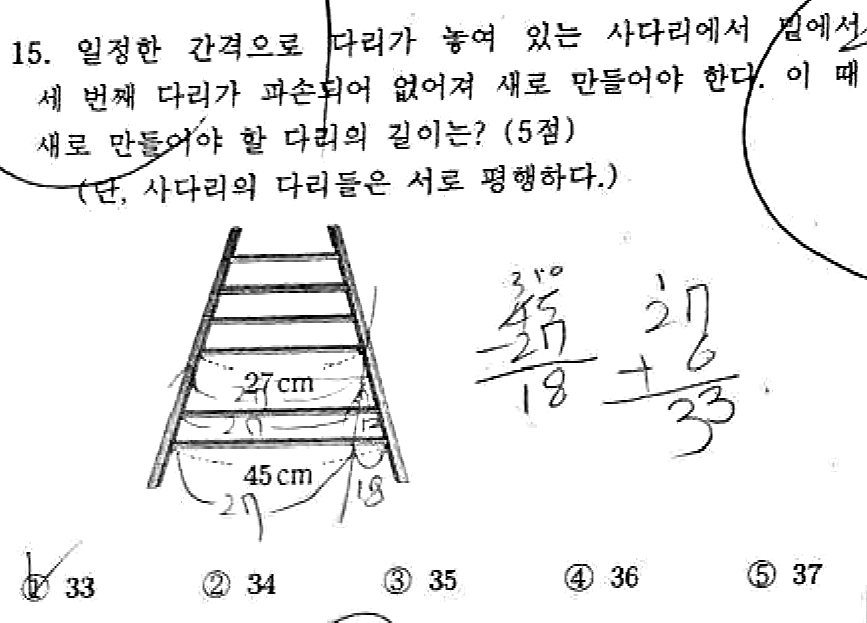 15. 일정한 간격으로 다리가 놓여 있는 사다리에서 밑에서
세 번째 다리가 파손되어 없어져 새로 만들어야 한다. 이 때
새로 만들어야 할 다리의 길이는? (5점)
(단, 사다리의 다리들은 서로 평행하다.)
3 10
45
-27
18
1
27
+ 6
33
27cm
27
27 12
45cm
27 18
① 33 ② 34 ③ 35 ④ 36 ⑤ 37